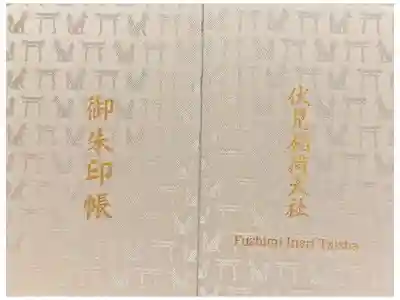 御朱印帳
伏見稲荷大社
Fushimi Inari Taisha